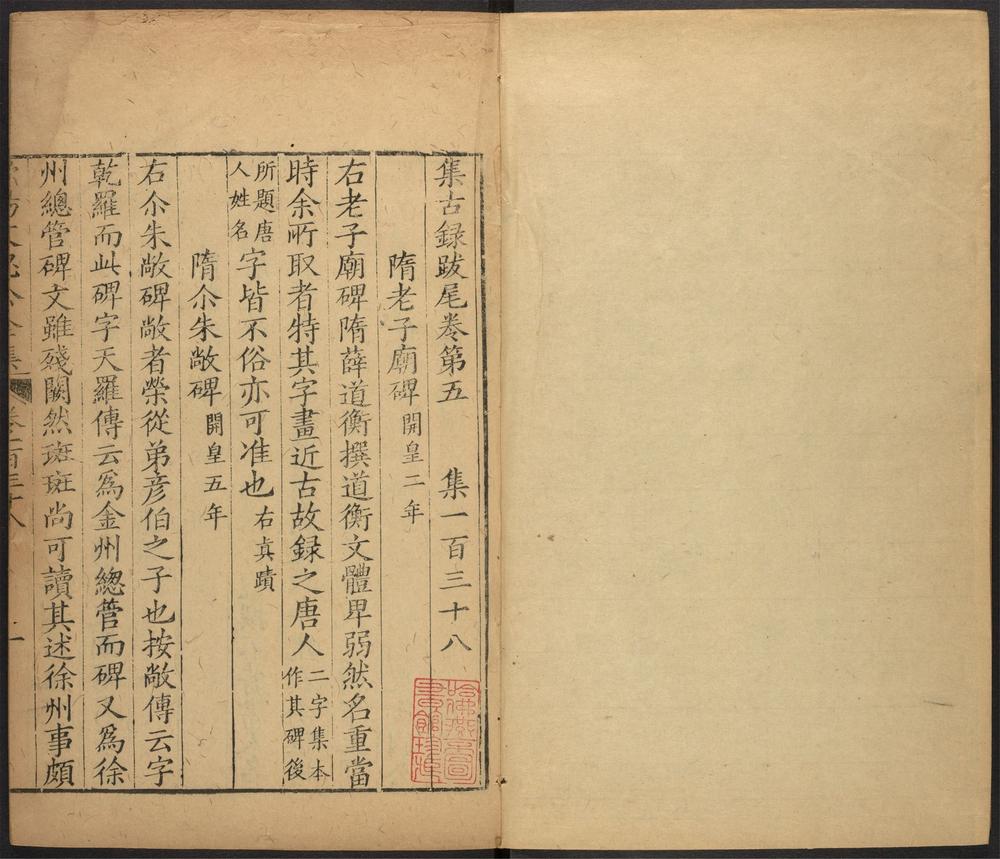 集古録跋尾卷第五　集一百三十八
隋老子廟碑開皇二年
右老子廟碑隋薛道衡撰道衡文體卑弱然名重當
時余所取者特其字畫近古故録之唐人二字集本作其碑後
所題唐人姓名字皆不俗亦可准也右真蹟
隋尒朱敞碑開皇五年
右尒朱敞碑敞者榮從弟彦伯之子也按敞傳云字
乾羅而此碑字天羅傳云爲金州總管而碑又爲徐
州總管碑文雖殘闕然斑斑尚可讀其述徐州事頗
卷一百三十八
哈佛燕京圖書館珍藏